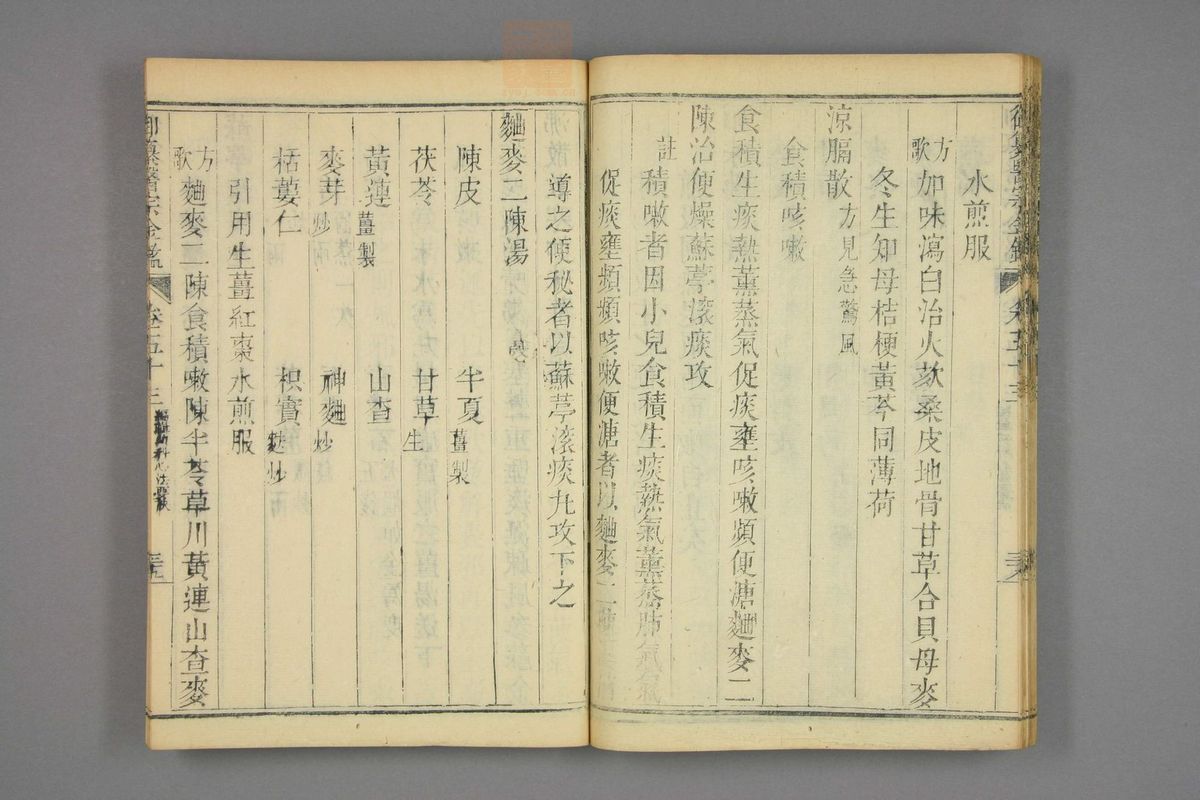 水煎服
方歌 加味瀉白治火欬桑皮地骨甘草合貝母麥
冬生知母桔梗黃芩同薄荷
涼膈散 方見急驚風
食積咳嗽
食積生痰熱薰蒸氣促痰壅咳嗽頻便溏麯麥二
陳治便燥蘇葶滚痰攻
註 積嗽者因小兒食積生痰熱氣薰蒸肺氣氣
促痰壅頻頻咳嗽便溏者以麯麥二陳
導之便秘者以蘇葶滚痰九攻下之
麯麥二陳湯
陳皮 半夏 薑製
茯苓 甘草 生
黃連 薑製 山查
麥芽 炒 神麯 炒
栝蔞仁 枳實 麩炒
引用生薑紅棗水煎服
方歌 麯麥二陳食積嗽陳半苓草川黃連山查麥
御纂醫宗金鑑 卷五十三